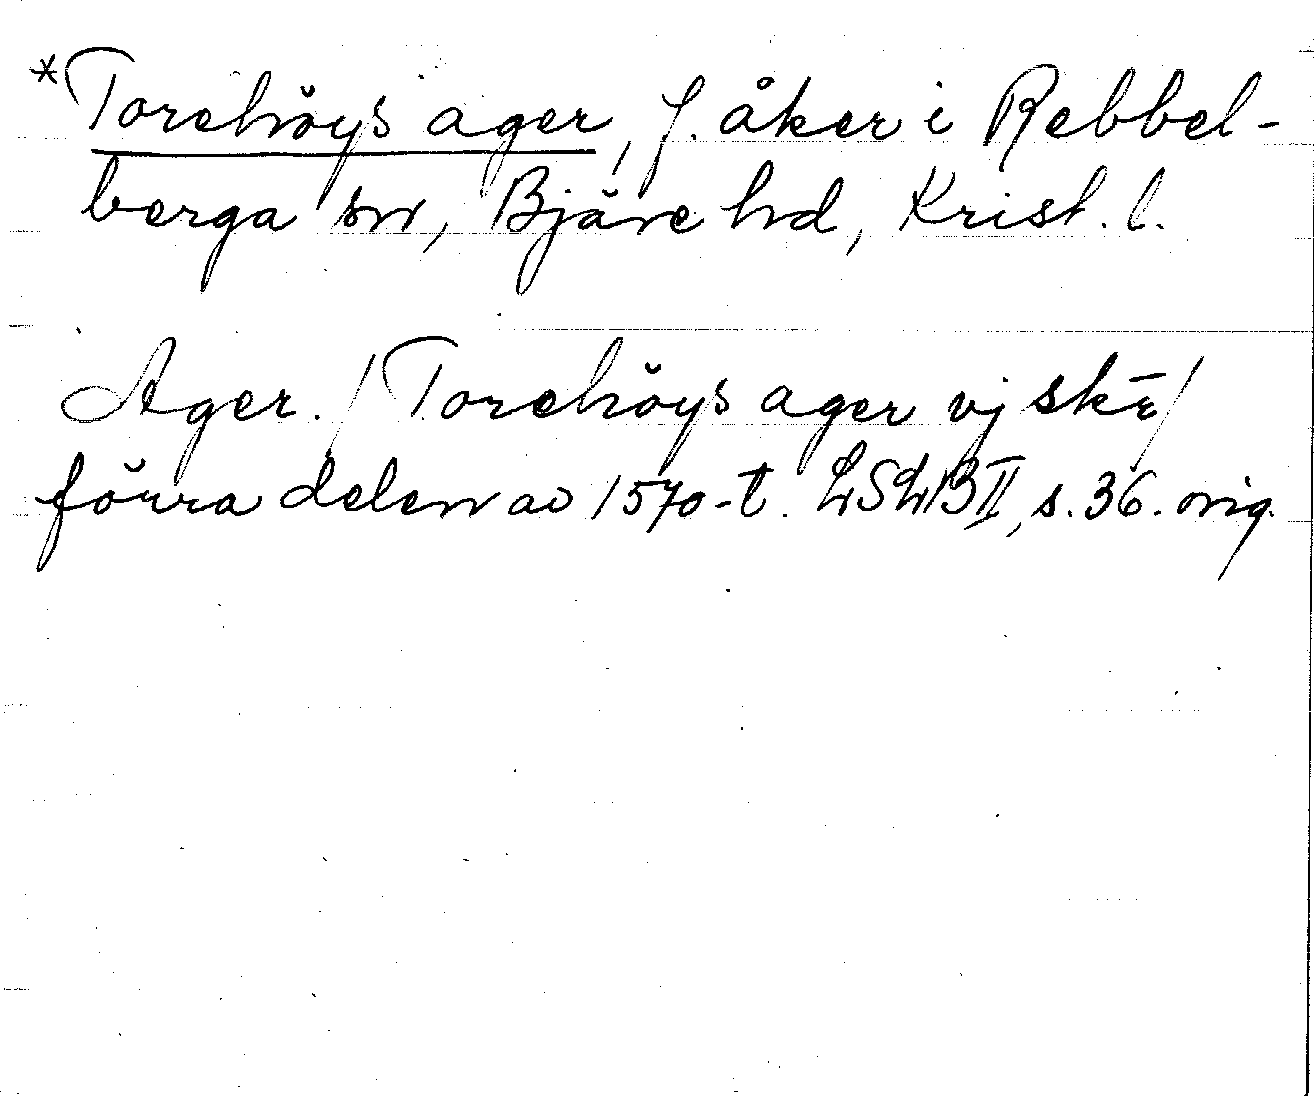 *Torehöys ager, f. åker i Rebbel-
berga sn, Bjäre hd, Krist. l.
Ager. / Torehöys ager vj skr̄ /
förra delen av 1570-t. LSLB II, s. 36. orig.